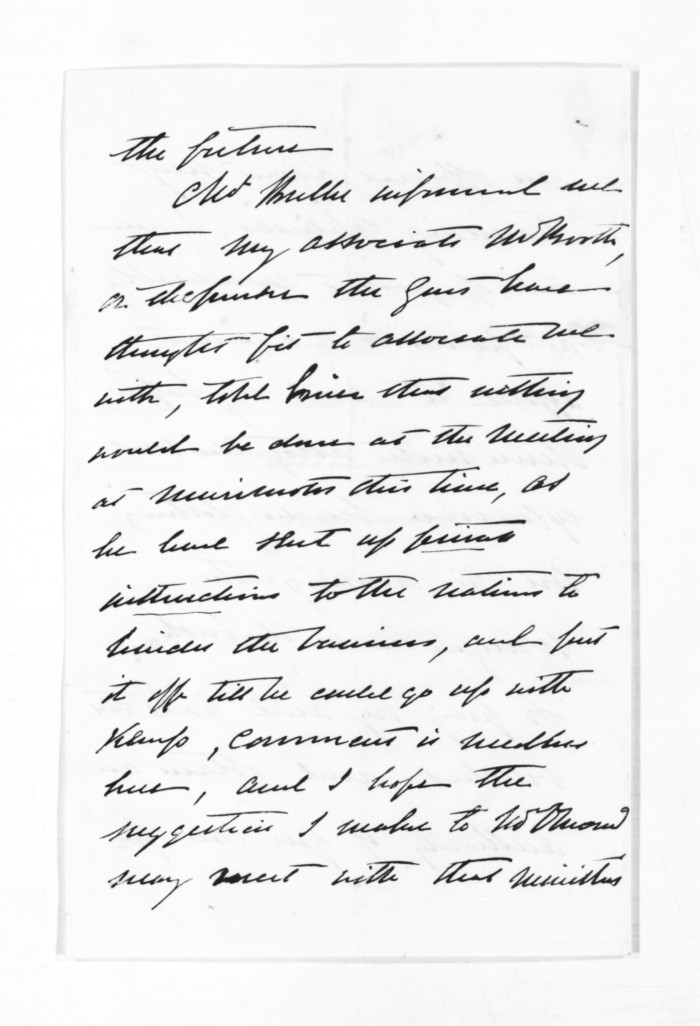 the future
Mr. informed me
that my associate Mr Booth,
or the person the Govt have
thought fit to associate me
with, told him that nothing
would be done at the Meeting
at this time, as
he had sent up private
instructions to the natives to
hinder the business, and put
it off till he could go up with
Kemp, comment is needless
here, and I hope the
suggestion I make to Mr Ormond
may meet with that Minister's